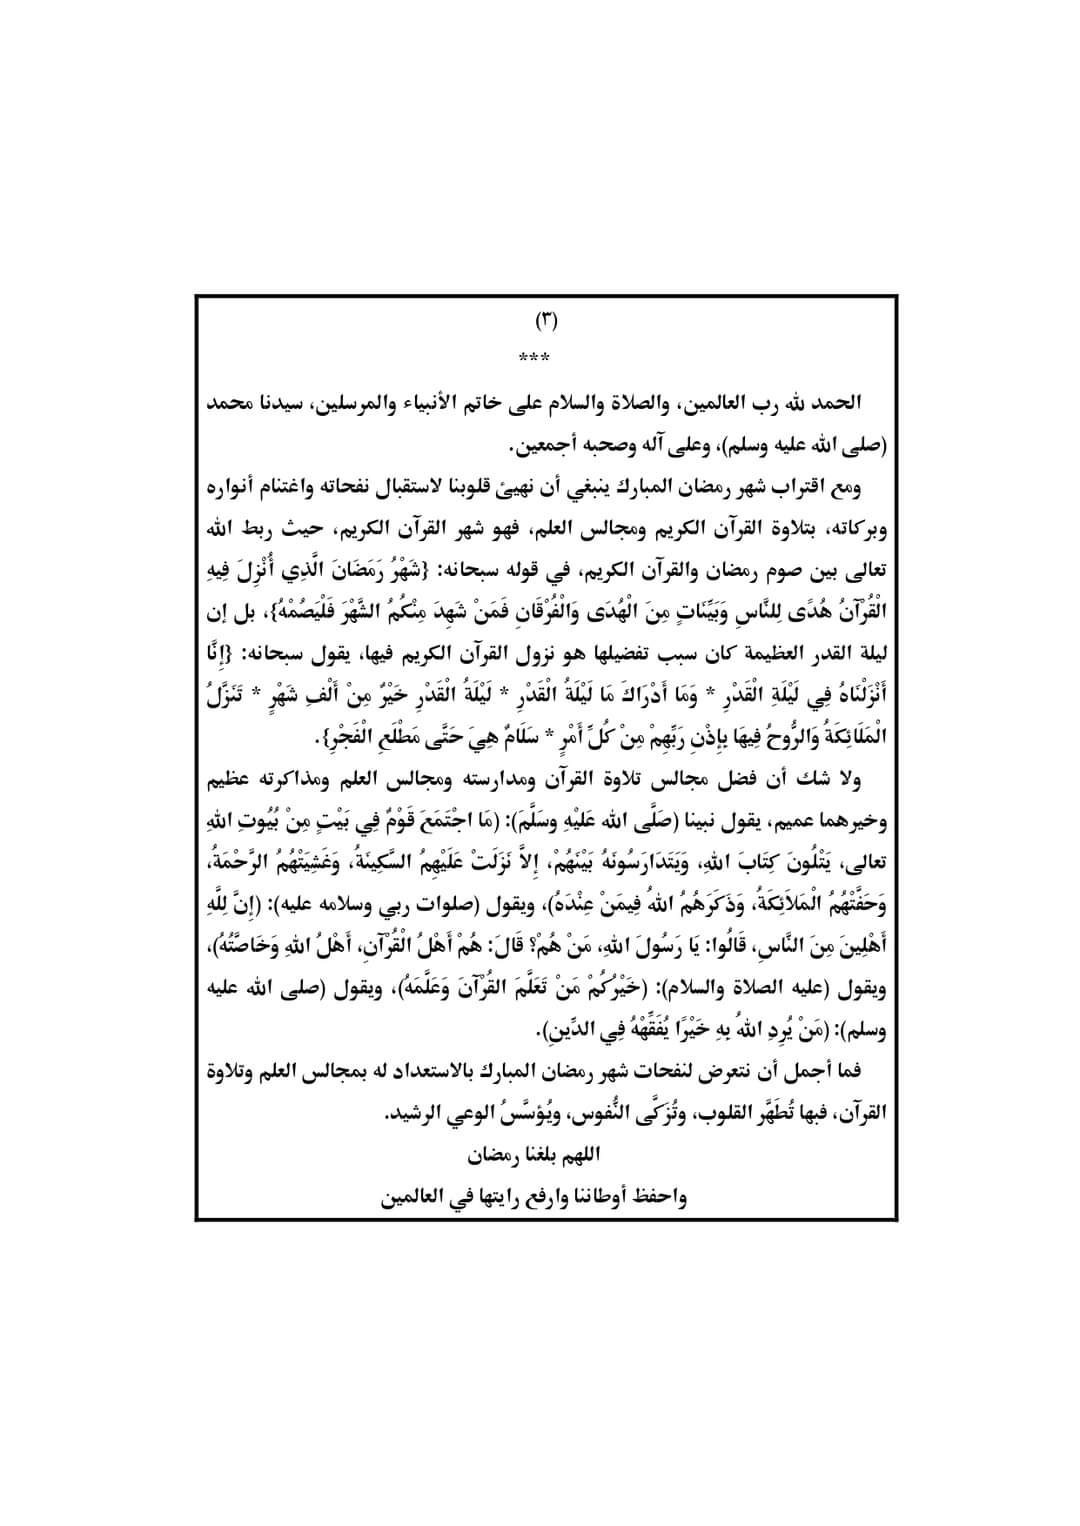 (٣)
***
الحمد لله رب العالمين، والصلاة والسلام على خاتم الأنبياء والمرسلين، سيدنا محمد
(صلى الله عليه وسلم)، وعلى آله وصحبه أجمعين.
ومع اقتراب شهر رمضان المبارك ينبغي أن نهيئ قلوبنا لاستقبال نفحاته واغتنام أنواره
وبركاته، بتلاوة القرآن الكريم ومجالس العلم، فهو شهر القرآن الكريم، حيث ربط الله
تعالى بين صوم رمضان والقرآن الكريم، في قوله سبحانه: {شَهْرُ رَمَضَانَ الَّذِي أُنْزِلَ فِيهِ
الْقُرْآنُ هُدًى لِلنَّاسِ وَبَيِّنَاتٍ مِنَ الْهُدَى وَالْفُرْقَانِ فَمَنْ شَهِدَ مِنْكُمُ الشَّهْرَ فَلْيَصُمْهُ}، بل إن
ليلة القدر العظيمة كان سبب تفضيلها هو نزول القرآن الكريم فيها، يقول سبحانه: {إِنَّا
أَنْزَلْنَاهُ فِي لَيْلَةِ الْقَدْرِ * وَمَا أَدْرَاكَ مَا لَيْلَةُ الْقَدْرِ * لَيْلَةُ الْقَدْرِ خَيْرٌ مِنْ أَلْفِ شَهْرٍ * تَنَزَّلُ
الْمَلَائِكَةُ وَالرُّوحُ فِيهَا بِإِذْنِ رَبِّهِمْ مِنْ كُلِّ أَمْرٍ * سَلَامٌ هِيَ حَتَّى مَطْلَعِ الْفَجْرِ}.
ولا شك أن فضل مجالس تلاوة القرآن ومدارسته ومجالس العلم ومذاكرته عظيم
وخيرهما عميم، يقول نبينا (صَلَّى الله عَلَيْهِ وسَلَّمَ): (مَا اجْتَمَعَ قَوْمٌ فِي بَيْتٍ مِنْ بُيُوتِ اللهِ
تعالى، يَتْلُونَ كِتَابَ اللهِ، وَيَتَدَارَسُونَهُ بَيْنَهُمْ، إِلاَّ نَزَلَتْ عَلَيْهِمُ السَّكِينَةُ، وَغَشِيَتْهُمُ الرَّحْمَةُ،
وَحَفَّتْهُمُ الْمَلاَئِكَةُ، وَذَكَرَهُمُ اللهُ فِيمَنْ عِنْدَهُ)، ويقول (صلوات ربي وسلامه عليه): (إِنَّ لِلَّهِ
أَهْلِينَ مِنَ النَّاسِ، قَالُوا: يَا رَسُولَ اللهِ، مَنْ هُمْ؟ قَالَ: هُمْ أَهْلُ الْقُرْآنِ، أَهْلُ اللهِ وَخَاصَّتُهُ)،
ويقول (عليه الصلاة والسلام): (خَيْرُكُمْ مَنْ تَعَلَّمَ القُرْآنَ وَعَلَّمَهُ)، ويقول (صلى الله عليه
وسلم): (مَنْ يُرِدِ اللهُ بِهِ خَيْرًا يُفَقِّهْهُ فِي الدِّينِ).
فما أجمل أن نتعرض لنفحات شهر رمضان المبارك بالاستعداد له بمجالس العلم وتلاوة
القرآن، فبها تُطَهَّر القلوب، وتُزَكَّى النُّفوس، ويُؤسَّسُ الوعي الرشيد.
اللهم بلغنا رمضان
واحفظ أوطاننا وارفع رايتها في العالمين